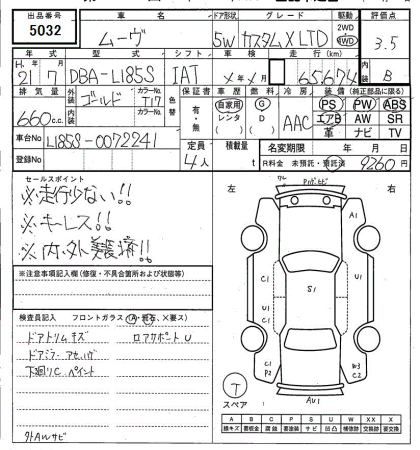 出品番号 車名 ドア形状 グレード 駆動 評価点
5032 ムーヴ 5W カスタムX LTD 2WD 4WD 3.5
年式 型式 シフト 車検 走行(km) 内装
H. 年 月
21 7 DBA-L185S IAT 年 月 65674 B
排気量 外装 カラーNo. 色替 保証書 車歴 燃料 冷房 装備(純正部品に限る)
660c.c. ゴールド T17 有・無 自家用 レンタ ( ) G D ( ) AAC PS PW ABS
内装 カラーNo. エアB AW SR
革 ナビ TV
車台No L185S-0072241 定員 積載量 名変期限 年 月 日
登録No 4人 t R料金 未預託・預託済 9260円
セールスポイント
※走行少ない!!
※キーレス!!
※内、外美車!!
※注意事項記入欄(修復・不具合箇所および状態等)
検査員記入 フロントガラス(A・飛石、×要ス)
ドアトリムキズ ロアサポートU
下廻りC ペイント
外AWサビ
左 右
A1
C1 S1 U1
U1
C1
C1
P2 W3
C2
T
スペア AU1
A B C P S U W XX X
線キズ 要板金 腐蝕 要塗装 サビ 凹凸 補修跡 交換跡 要交換